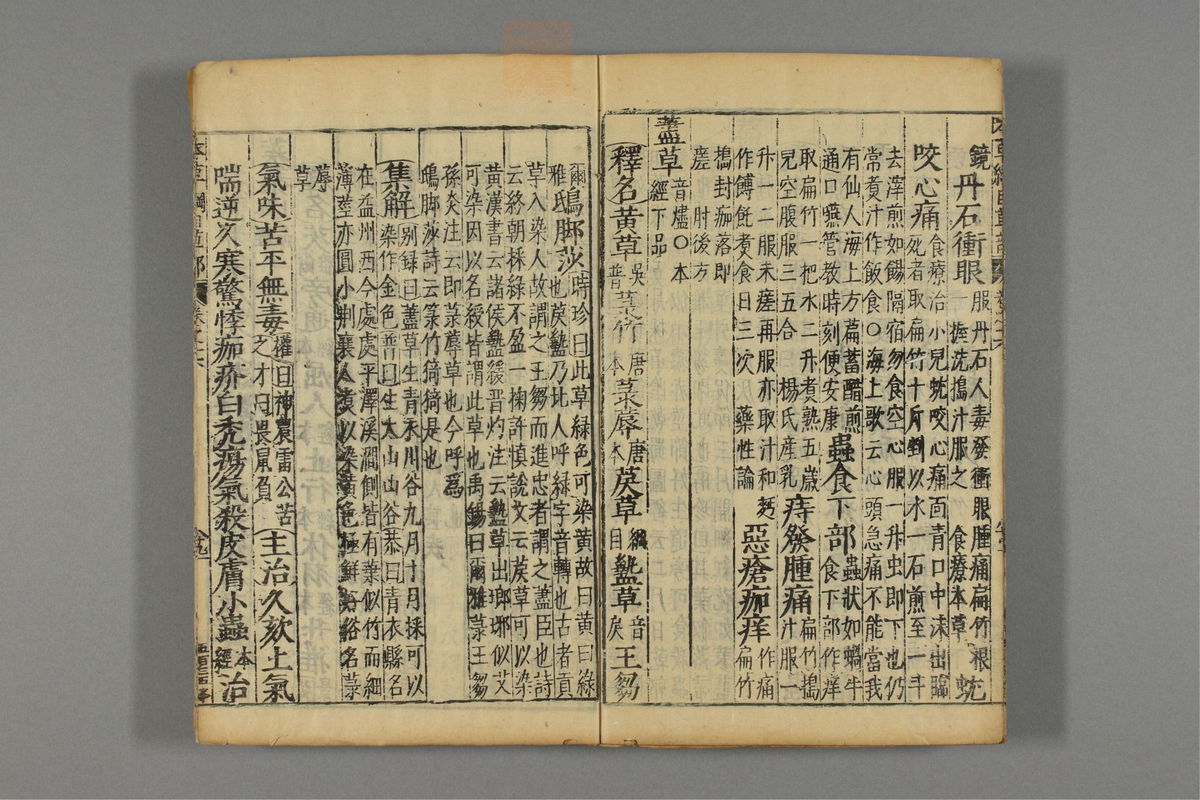 鏡 丹石衝眼 服丹石人毒發衝眼腫痛扁竹根一握洗搗汁服之 食療本草 蚘
咬心痛 食療治小兒蚘咬心痛面青口中沫出臨死者取扁竹十斤剉以水一石煎至一斗
去滓煎如餳隔宿勿食空心服一升虫即下也仍
常煮汁作飯食○海上歌云心頭急痛不能當我
有仙人海上方萹蓄醋煎通口嚥管教時刻便安康 蟲食下部 蟲狀如蝸牛食下部作痒
取扁竹一把水二升煮熟五歲兒空腹服三五合 楊氏產乳 痔發腫痛 扁竹搗汁服一
升一二服未瘥再服亦取汁和麪作餺飥煮食日三次 藥性論 惡瘡痂痒 作痛扁竹
搗封痂落即瘥 肘後方
藎草 音燼○本經下品
釋名 黃草 吳普 菉竹 唐本 菉蓐 唐本 莨草 綱目 盭草 音戾 王芻
爾雅 鴟脚莎 時珍曰此草綠色可染黃故曰黃曰綠也莨盭乃北人呼綠字音轉也古者貢
草入染人故謂之王芻而進忠者謂之藎臣也詩
云終朝采綠不盈一掬許慎說文云莨草可以染
黃漢書云諸侯盭綬晋灼注云盭草出琅邪似艾
可染因以名綬皆謂此草也禹錫曰爾雅菉王芻
孫炎注云即菉蓐草也今呼為鴟脚莎詩云菉竹猗猗是也
集解 别録曰藎草生青衣川谷九月十月採可以染作金色普曰生太山山谷恭曰青衣縣名
在益州西今處處平澤溪澗側皆有葉似竹而細
薄莖亦圓小荆襄人煮以染黃色極鮮好俗名菉蓐草
氣味苦平無毒 權曰神農雷公苦之才曰畏鼠負 主治久欬上氣
喘逆久寒驚悸痂疥白禿瘍氣殺皮膚小蟲 本經 治